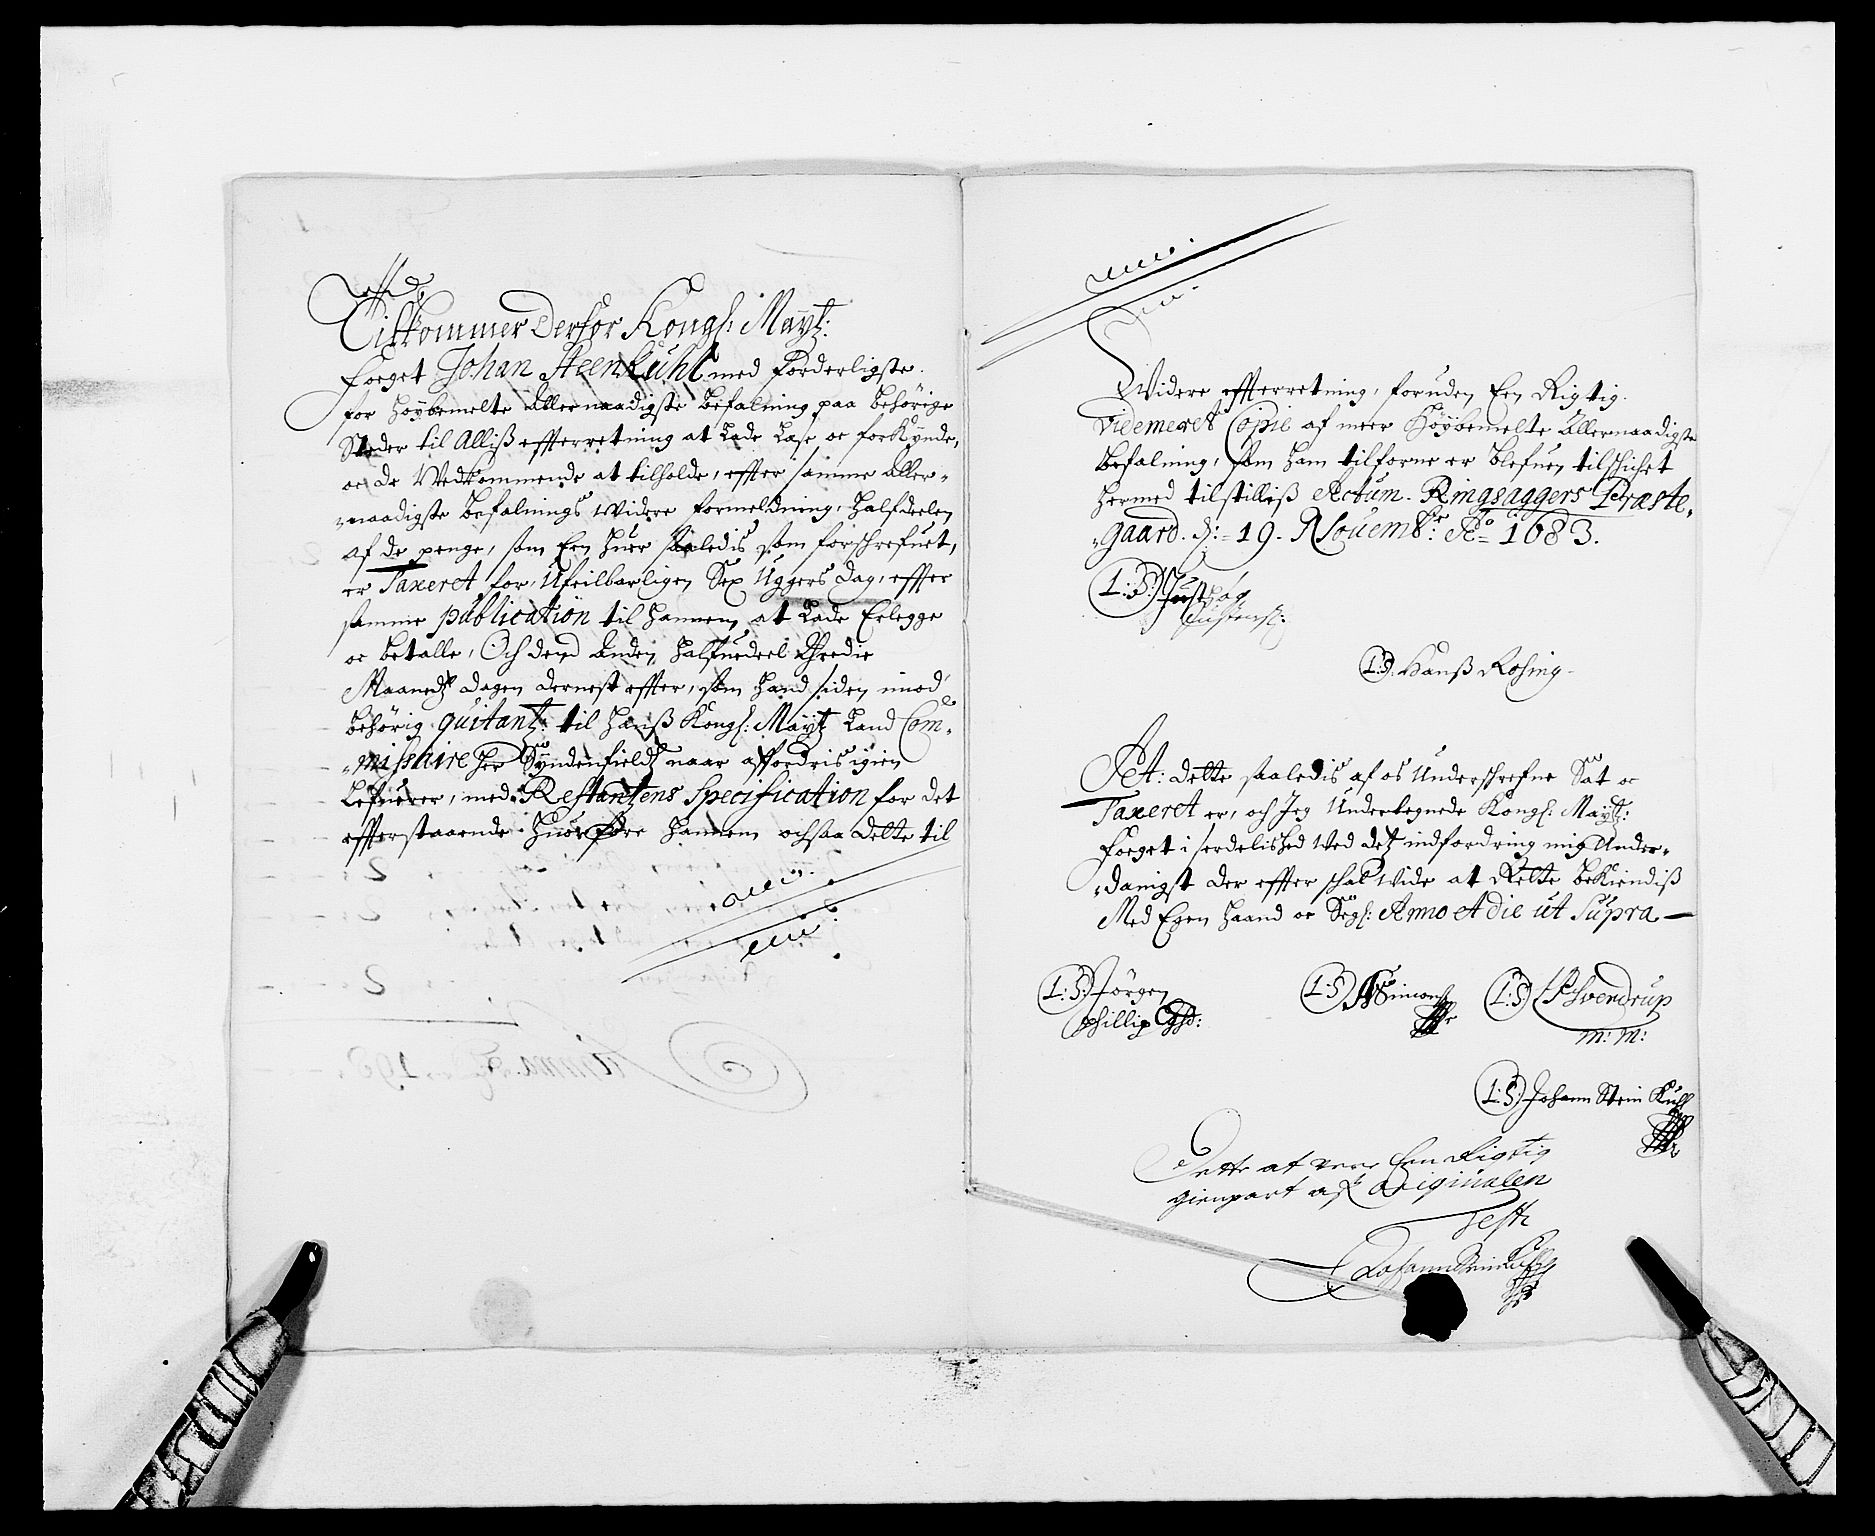 Tilkommer derfor Kongl: Maytz:
foeget Johan Steenkuhl med forderligste
for høybemelte allernaadigste befalning paa behørige
Steder til Alliß effterretning at lade læse oc forkynde,
oc de Vedkommende at tilholde, effter samme aller-
naadigste befalnings widere formeldning, halfdeelen
af de penge, som Een huer saaledis som forschrefuet,
er Taxeret for, Ufeilbarligen Sex Uggers dag, effter
samme publication til hannem at lade Erlegge
oc betalle, Och dend anden halfuedeel Thredie
Maanedtz dagen dernest effter, som hand siden imod
behörig quitantz: til hanß Kongl: Maytz Land Com-
missaire her Syndenfieldtz naar affordris igien
lefuerer, med Restantzens Specification for det
effterstaaende, huorfore hannem ochsaa dette til
Widere effterretning, foruden Een Rigtig
videmeret Copie af meer Höybemelte Allernaadigste
befalning, som ham tilforne er blefuen tilschichet
hermed tilstilliß Actum. Ringsaggers Præste-
gaard. d: 19. Nouembr: Ao 1683.
L:S: Just høg
Justens:
L:S: Hanß Rosing
At: dette saaledis af os Underschrefne Sat oc
Taxeret er, och Jeg Undertegnede Kongl: Maytz:
foeget i serdelished Ved detz indfordring mig Under-
danigst der effter schal vide at Rette bekiendiß
Med Egen haand oc Segl: Anno et die ut Supra
L:S: Jörgen
Phillip
L:S: Simons
L:S: P Svendrup
m: m:
L:S: Johann Stein Kuhl
Dette at vere Een Rigtig
gienpart aff Originalen
Testr
Johann Steinkuhl